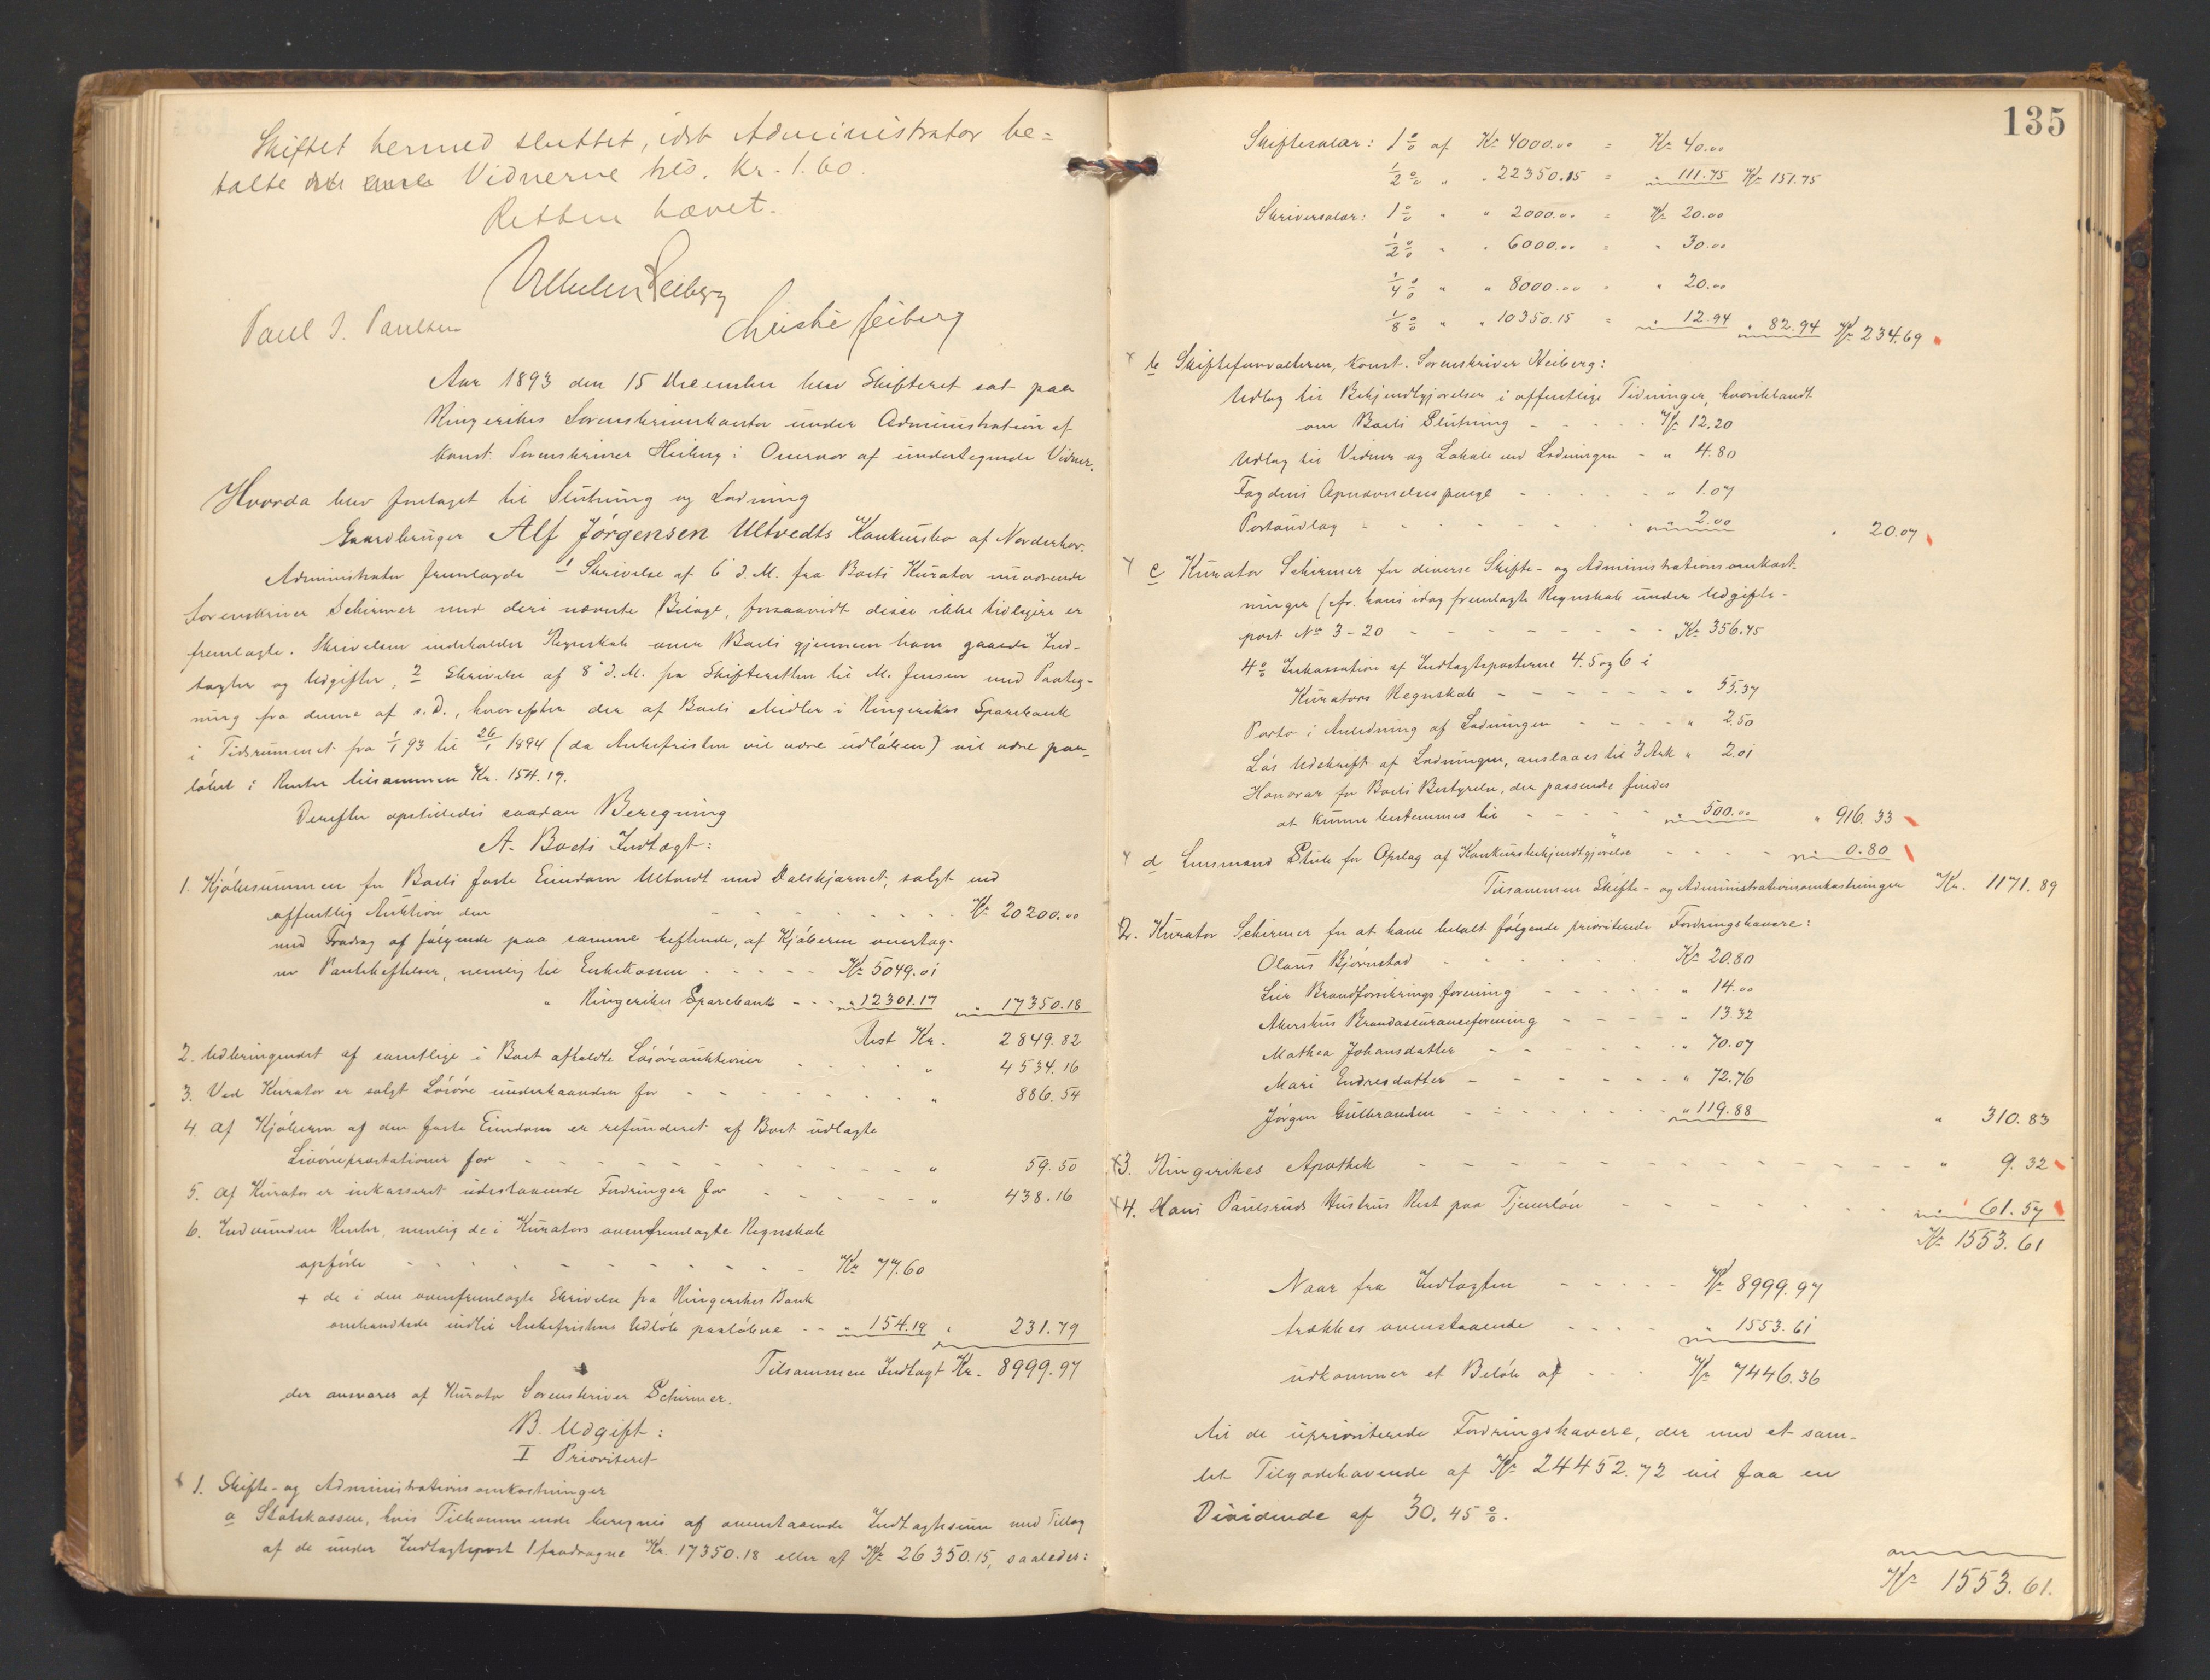 Skiftet hermed sluttet, idet Administrator be=
talte Vidnerne hls. Kr. 1.60.
Retten hævet.
Vilhelm Heiberg
Paul J. Paulsen
Christie Heiberg
Aar 1893 den 15 December blev Skifteret sat paa
Ringerikes Sorenskriverkontor under Administration af
konst. Sorenskriver Heiberg i Overvær af undertegnede Vidner.
Hvorda blev foretaget til Slutning og Lodning
Gaardbruger Alf Jørgensen Ultvedts Konkursbo af Norderhov.
Administrator fremlagde 1 Skrivelse af 6 d. M. fra Boets Kurator nuværende
Sorenskriver Schirmer med deri nævnte Bilage, forsaavidt disse ikke tidligere er
fremlagte. Skrivelsen indeholder Regnskab over Boets gjennem ham gaaede Ind-
tægter og Udgifter, 2 Skrivelse af 8 d. M. fra Skifteretten til M. Jensen med Paateg-
ning fra denne af s. D., hvorefter der af Boets Midler i Ringerikes Sparebank
i Tidsrummet fra 1/1 93 til 26/1 1894 (da Ankefristen vil være udløben) vil være paa-
løbet i Renter tilsammen Kr. 154.19.
Derefter opstilledes saadan Beregning
A. Boets Indtægt:
1. Kjøbesummen for Boets faste Eiendom Ultvedt med Dalskjærnet, solgt ved
offentlig Auktion den - - - - Kr. 20200.00
med Fradrag af følgende paa samme heftende, af Kjøberen overtag-
ne Pantehæftelser, nemlig til Enkekassen - - - Kr. 5049.01
" Ringerikes Sparebank - - - " 12301.17 " 17350.18
Rest Kr. 2849.82
2. Udbringendet af samtlige i Boet afholdte Løsøreauktioner - - - " 4534.16
3. Ved Kurator er solgt Løsøre underhaanden for - - - " 886.54
4. Af Kjøberen af den faste Eiendom er refunderet af Boet udlagte
Livøreprestationer for - - - " 59.50
5. Af Kurator er inkasseret udestaaende Fordringer for - - - " 438.16
6. Indvundne Renter, nemlig de i Kurators ovenfremlagte Regnskab
opførte - - - Kr. 77.60
+ de i den ovenfremlagte Skrivelse fra Ringerikes Bank
omhandlede indtil Ankefristens Udløb paaløbne - - " 154.19 " 231.79
Tilsammen Indtægt Kr. 8999.97
der ansvares af Kurator Sorenskriver Schirmer.
B. Udgift:
I Prioriteret
1. Skifte- og Administrationsomkostninger
a Statskassen, hvis Tilkommende beregnes af ovenstaaende Indtægtssum med Tillæg
af de under Indtægtspost 1 fradragne Kr. 17350.18 eller af Kr. 26350.15, saaledes:
135
Skiftesalær: 1 % af Kr. 4000.00 = Kr. 40.00
1/2 % " " 22350.15 = " 111.75 Kr. 151.75
Skriversalær: 1 % " " 2000.00 = Kr. 20.00
1/2 % " " 6000.00 = " 30.00
1/4 % " " 8000.00 = " 20.00
1/8 % " " 10350.15 = " 12.94 " 82.94 Kr. 234.69
b Skifteforvalteren, konst. Sorenskriver Heiberg:
Udlæg til Bekjendtgjørelser i offentlige Tidninger, hvoriblandt
om Boets Slutning - - - Kr. 12.20
Udlæg til Vidner og Lokale ved Lodningen - " 4.80
Fogdens Opnævnelsespenge - - - " 1.07
Portoudlæg - - - " 2.00 " 20.07
c Kurator Schirmer for diverse Skifte- og Administrationsomkost-
ninger (cfr. hans idag fremlagte Regnskab under Udgifts-
post No 3-20 - - - Kr. 356.45
4 % Inkassation af Indtægtsposterne 4. 5 og 6 i
Kurators Regnskab - - - " 55.37
Porto i Anledning af Lodningen - - - " 2.50
Løs Udskrift af Lodningen, anslaaes til 3 Ark " 2.01
Honorar for Boets Bestyrelse, der passende findes
at kunne bestemmes til - - - " 500.00 " 916.33
d Lensmand Stub for Opslag af Konkursbekjendtgjørelse - - - " 0.80
Tilsammen Skifte- og Administrationsomkostninger Kr. 1171.89
2. Kurator Schirmer for at have betalt følgende prioriterede Fordringshavere:
Olaus Bjørnstad - - - Kr. 20.80
Lier Brandforsikringsforening - - - " 14.00
Akershus Brandassuranceforening - - - " 13.32
Mathea Johansdatter - - - " 70.07
Mari Endresdatter - - - " 72.76
Jørgen Gulbrandsen - - - " 119.88 " 310.83
3. Ringerikes Apothek - - - " 9.32
4. Hans Paulsruds Hustrus Rest paa Tjenerløn - - - " 61.57
Kr. 1553.61
Naar fra Indtægten - - - Kr. 8999.97
trækkes ovenstaaende - - - " 1553.61
udkommer et Beløb af - - - Kr. 7446.36
til de uprioriterede Fordringshavere, der med et sam-
let Tilgodehavende af Kr. 24452.72 vil faa en
Dividende af 30.45 %.
Kr. 1553.61.